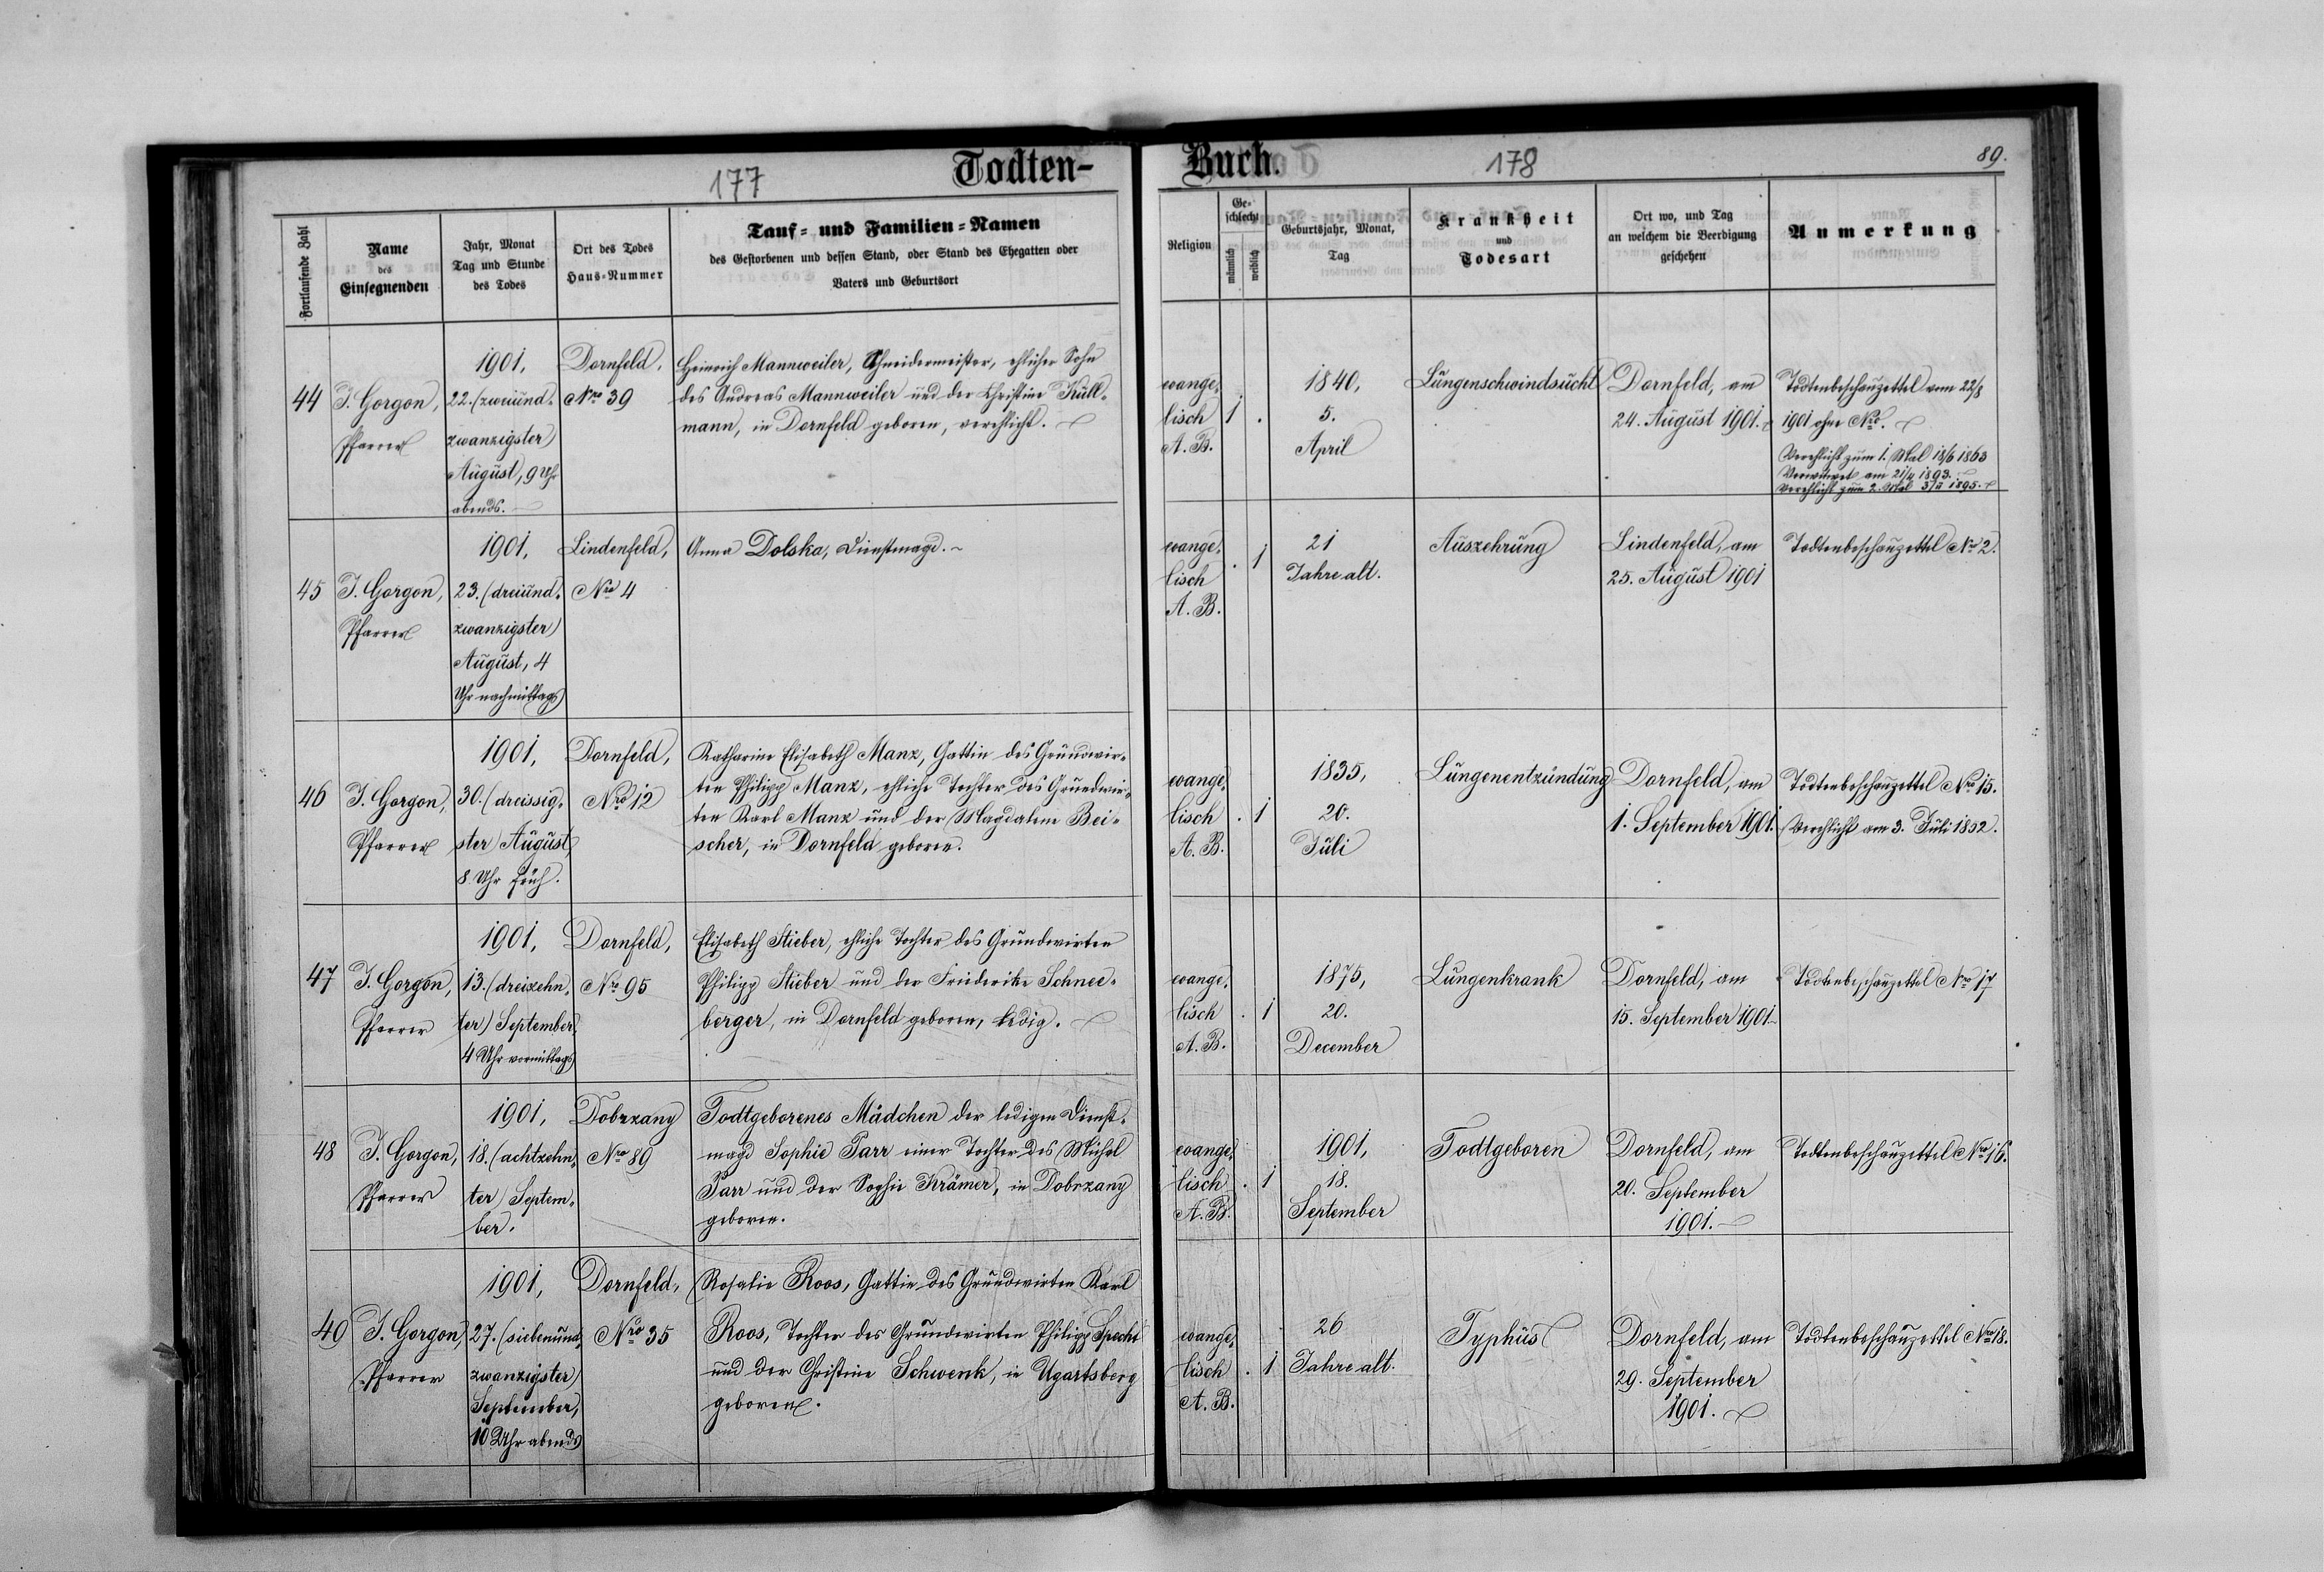 177
Todten-
Fortlaufende Zahl
Name
des
Einsegnenden
Jahr, Monat
Tag und Stunde
des Todes
Ort des Todes
Haus-Nummer
Tauf- und Familien-Namen
des Gestorbenen und dessen Stand, oder Stand des Ehegatten oder
Vaters und Geburtsort
44
J. Gorgon,
Pfarrer
1901,
22. (zweiund-
zwanzigster)
August, 9 Uhr
abends.
Dornfeld,
Nro 39
Heinrich Mannweiler, Schneidermeister, ehlicher Sohn
des Andreas Mannweiler und der Christine Kull-
mann, in Dornfeld geboren, verehlicht.
45
J. Gorgon,
Pfarrer
1901,
23. (dreiund-
zwanzigster)
August, 4
Uhr nachmittags
Lindenfeld,
Nro 4
Anna Dolska, Dienstmagd.
46
J. Gorgon,
Pfarrer
1901,
30. (dreissig-
ster August,
8 Uhr früh.
Dornfeld,
Nro 12
Katharine Elisabeth Manz, Gattin des Grundwir-
ten Philipp Manz, ehliche Tochter des Grundwir-
ten Karl Manz und der Magdalene Bei-
scher, in Dornfeld geboren.
47
J. Gorgon,
Pfarrer
1901,
13. (dreizehn-
ter) September
4 Uhr vormittags
Dornfeld,
Nro 95
Elisabeth Stieber, ehliche Tochter des Grundwirten
Philipp Stieber und der Friederike Schnee-
berger, in Dornfeld geboren, ledig.
48
J. Gorgon,
Pfarrer
1901,
18. (achtzehn-
ter) Septem-
ber.
Dobrzany
Nro 89
Todtgeborenes Mädchen der ledigen Dienst-
magd Sophie Parr einer Tochter des Michel
Parr und der Sophie Krämer, in Dobrzany
geboren.
40
J. Gorgon,
Pfarrer
1901,
27. (siebenund-
zwanzigster)
September,
10 Uhr abends
Dornfeld,
Nro 35
Rosalie Roos, Gattin des Grundwirten Karl
Roos, Tochter des Grundwirten Philipp Specht
und der Christine Schwenk, in Ugartsberg
geboren.
Buch.
178
89.
Religion
Ge-
schlecht
männlich
weiblich
Geburtsjahr, Monat,
Tag
Krankheit
und
Todesart
Ort wo, und Tag
an welchem die Beerdigung
geschehen
Anmerkung
evange-
lisch
A. B.
1 .
1840,
5.
April
Lungenschwindsucht
Dornfeld, am
24. August 1901.
Todtenbeschauzettel vom 22/8
1901 ohne Nro.
Verehlicht zum 1. Mal 18/6 1863
Verwitwet am 21/4 1893.
Verehlicht zum 2. Mal 3/2 1895.
evange-
lisch
A. B.
. 1
21
Jahre alt.
Auszehrung
Lindenfeld, am
25. August 1901
Todtenbeschauzettel Nro 2.
evange-
lisch
A. B.
. 1
1835,
20.
Juli
Lungenentzündung
Dornfeld, am
1. September 1901.
Todtenbeschauzettel Nro 15.
Verehlicht am 3. Juli 1852.
evange-
lisch
A. B.
. 1
1875,
20.
December
Lungenkrank
Dornfeld, am
15. September 1901
Todtenbeschauzettel Nro 17
evange-
lisch
A. B.
. 1
1901,
18.
September
Todtgeboren
Dornfeld, am
20. September
1901.
Todtenbeschauzettel Nro 16.
evange-
lisch
A. B.
. 1
26
Jahre alt.
Typhus
Dornfeld, am
29. September
1901.
Todtenbeschauzettel Nro 18.